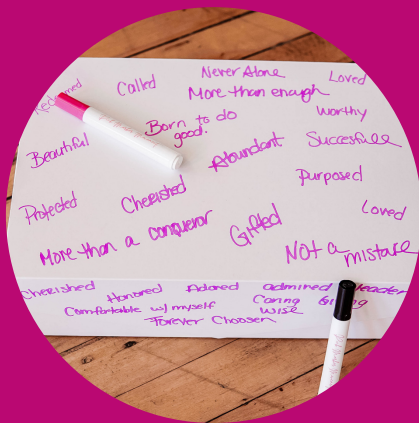 Redeemed
Called
Never Alone
Loved
More than enough
Born to do
good.
Worthy
Beautiful
Abundant
Succesfull
Purposed
Protected
Cherished
Loved
More than a conqueror
Gifted
Not a mistake
Cherished
Honored
Adored
admired
leader
Comfortable w/ myself
Caring
Wise
Forever Choosen